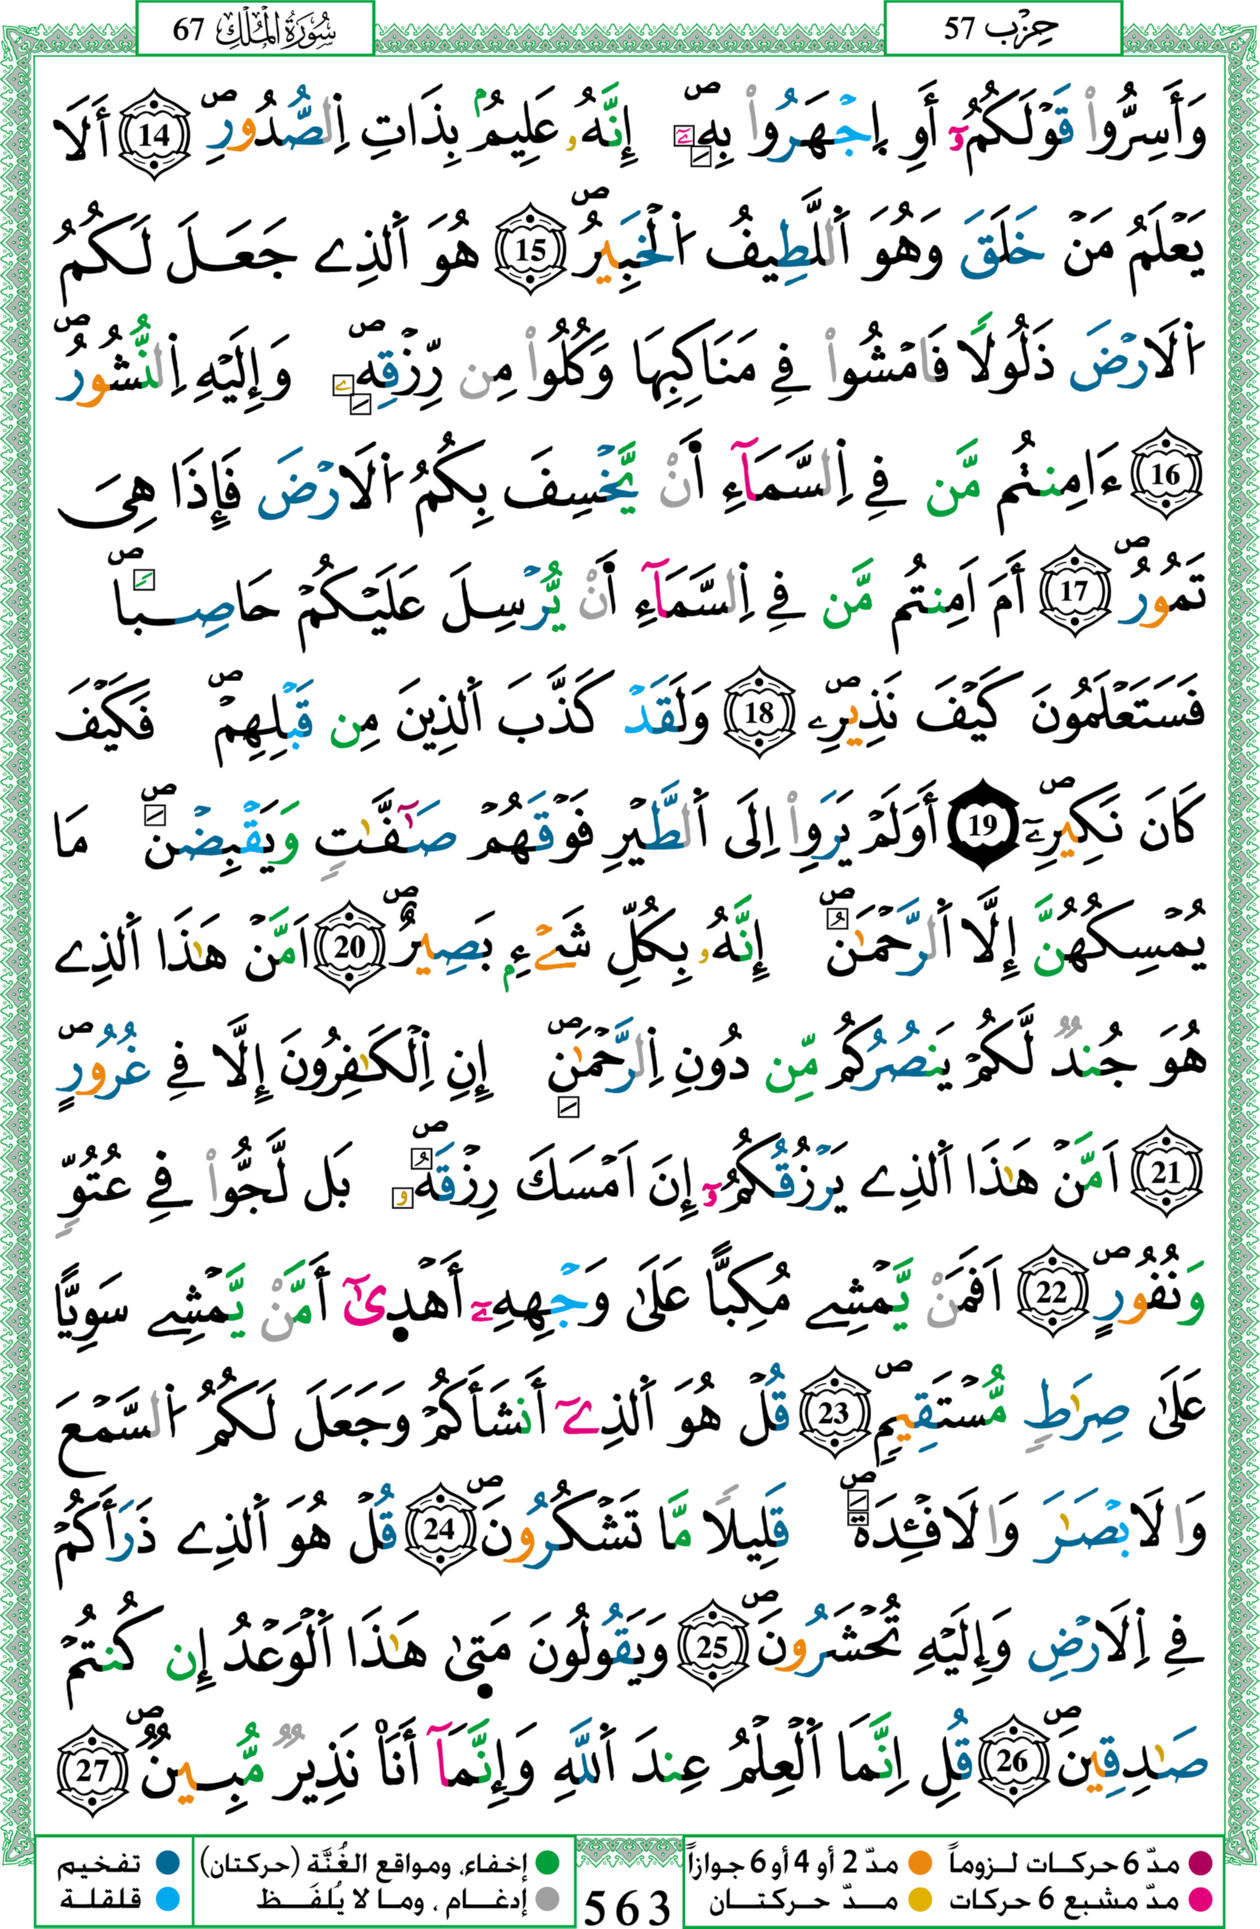 حِزْب 57
سُورَةُ المُلْكِ 67
وَأَسِرُّواْ قَوْلَكُمُۥٓ أَوِ اِ۪جْهَرُواْ بِهِۦٓۖ إِنَّهُۥ عَلِيمُۢ بِذَاتِ اِ۬لصُّدُورِۖ 14 أَلَا
يَعْلَمُ مَنْ خَلَقَ وَهُوَ اَ۬للَّطِيفُ اُ۬لْخَبِيرُۖ 15 هُوَ اَ۬لذِے جَعَلَ لَكُمُ
اُ۬لَارْضَ ذَلُولاٗ فَامْشُواْ فِے مَنَاكِبِهَا وَكُلُواْ مِن رِّزْقِهِۦۖ وَإِلَيْهِ اِ۬لنُّشُورُۖ
16 ءَآمِنتُم مَّن فِے اِ۬لسَّمَآءِ اَ۬نْ يَّخْسِفَ بِكُمُ اُ۬لَارْضَ فَإِذَا هِىَ
تَمُورُۖ 17 أَمَ اَمِنتُم مَّن فِے اِ۬لسَّمَآءِ اَ۬نْ يُّرْسِلَ عَلَيْكُمْ حَاصِباٗۖ
فَسَتَعْلَمُونَ كَيْفَ نَذِيرِۦۖ 18 وَلَقَدْ كَذَّبَ اَ۬لذِينَ مِن قَبْلِهِمْۖ فَكَيْفَ
كَانَ نَكِيرِۦٓۖ 19 أَوَلَمْ يَرَوِاْ اِلَى اَ۬لطَّيْرِ فَوْقَهُمْ صَٰٓفَّٰتٖ وَيَقْبِضْنَۖ مَا
يُمْسِكُهُنَّ إِلَّا اَ۬لرَّحْمَٰنُۖ إِنَّهُۥ بِكُلِّ شَےْءِۢ بَصِيرٌۖ 20 اَمَّنْ هَٰذَا اَ۬لذِے
هُوَ جُندٞ لَّكُمْ يَنصُرُكُم مِّن دُونِ اِ۬لرَّحْمَٰنِۖ إِنِ اِ۬لْكَٰفِرُونَ إِلَّا فِے غُرُورٍۖ
21 اَمَّنْ هَٰذَا اَ۬لذِے يَرْزُقُكُمُۥٓ إِنَ اَمْسَكَ رِزْقَهُۥۖ بَل لَّجُّواْ فِے عُتُوّٖ
وَنُفُورٍۖ 22 اَفَمَنْ يَّمْشِے مُكِبّاً عَلَىٰ وَجْهِهِۦٓ أَهْد۪ىٰٓ أَمَّنْ يَّمْشِے سَوِيّاً
عَلَىٰ صِرَٰطٖ مُّسْتَقِيمٍۖ 23 قُلْ هُوَ اَ۬لذِےٓ أَنشَأَكُمْ وَجَعَلَ لَكُمُ اُ۬لسَّمْعَ
وَالَابْصَٰرَ وَالَافْـِٕدَةَۖ قَلِيلاٗ مَّا تَشْكُرُونَۖ 24 قُلْ هُوَ اَ۬لذِے ذَرَأَكُمْ
فِے اِ۬لَارْضِ وَإِلَيْهِ تُحْشَرُونَۖ 25 وَيَقُولُونَ مَت۪ىٰ هَٰذَا اَ۬لْوَعْدُ إِن كُنتُمْ
صَٰدِقِينَۖ 26 قُلِ اِنَّمَا اَ۬لْعِلْمُ عِندَ اَ۬للَّهِ وَإِنَّمَآ أَنَا۠ نَذِيرٞ مُّبِينٌۖ 27
مدّ 6 حركات لـزوماً
مدّ 2 أو 4 أو 6 جوازاً
إخفاء، ومواقع الغُنَّة (حركتان)
تفخيم
مدّ مشبع 6 حركات
مـدّ حـركتـان
إدغـام ، ومـا لا يُلفَـظ
قلقلة
563